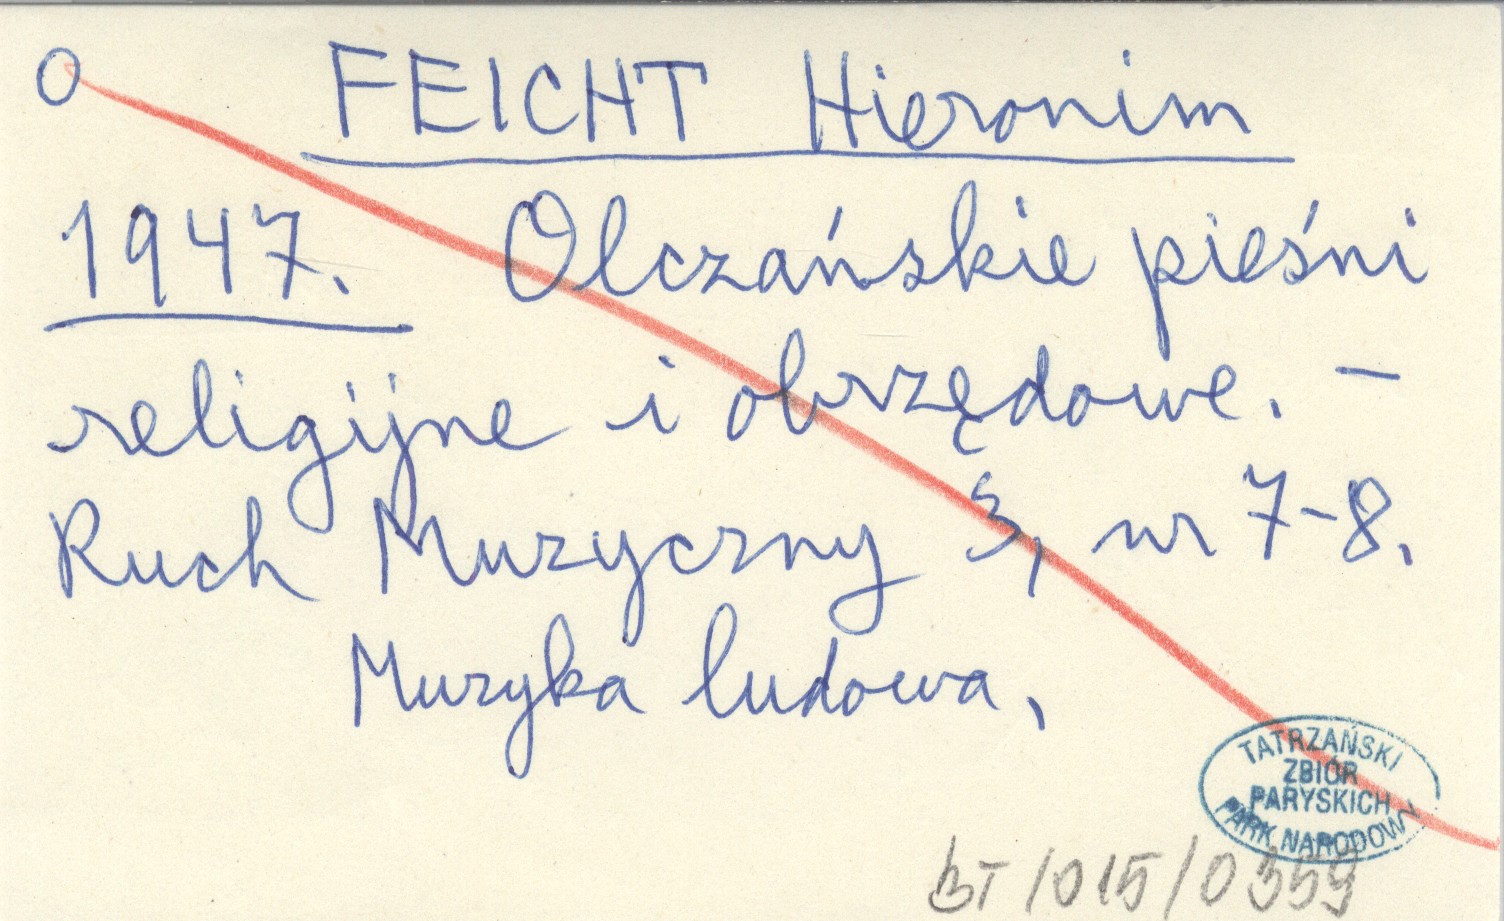 O FEICHT Hieronim
1947. Olczańskie pieśni
religijne i obrzędowe. –
Ruch Muzyczny 3, nr 7-8.
Muzyka ludowa,
TATRZAŃSKI
ZBIÓR
PARYSKICH
PARK NARODOWY
BT/015/0359